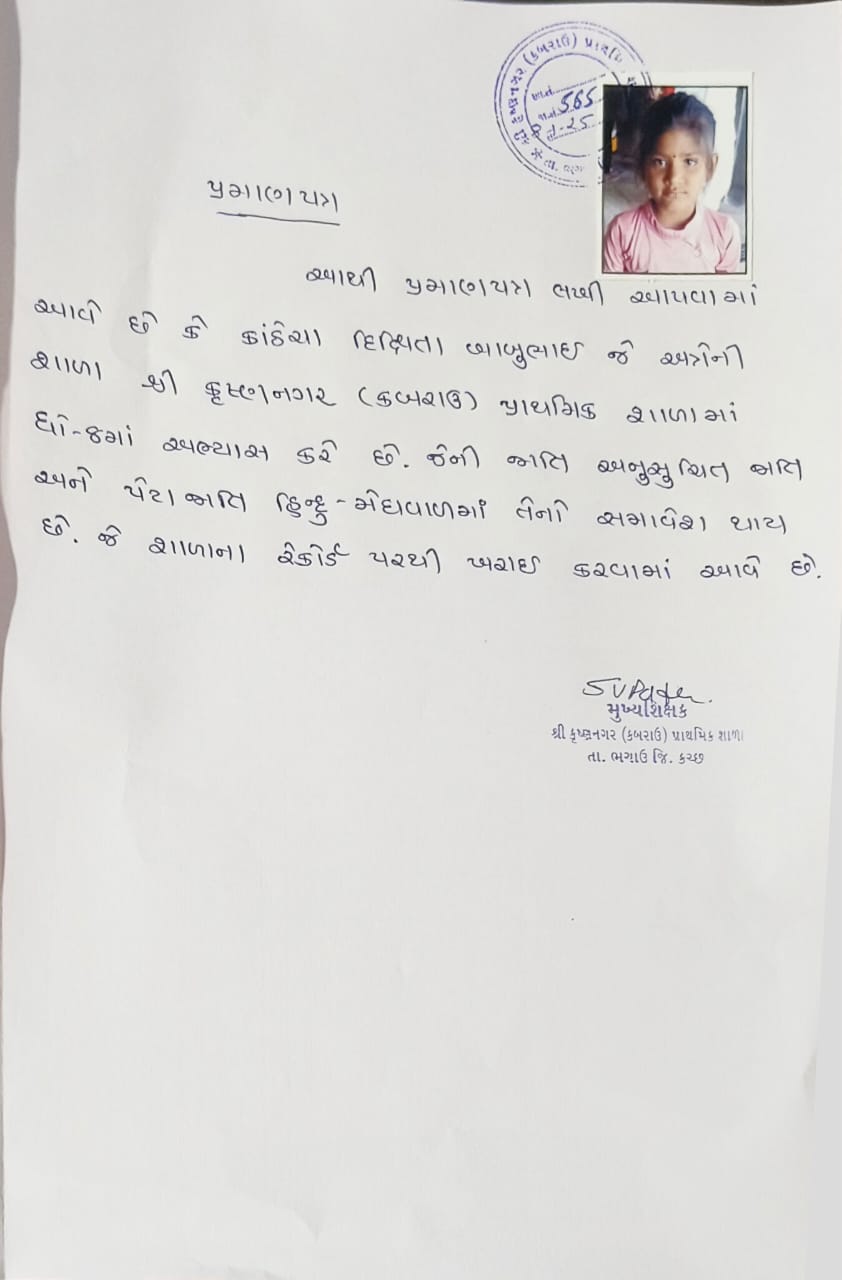 શ્રી કૃષ્ણનગર (કબરાઉ) પ્રાથમિ
565
પ્રમાણપત્ર
આથી પ્રમાણપત્ર લખી આપવામાં
આવે છે કે કાંઠેચા દિક્ષિતા બાબુલાઇ જે અત્રેની
શાળા શ્રી કૃષ્ણનગર (કબરાઉ) પ્રાથમિક શાળામાં
અભ્યાસ કરે છે. જેની જાતિ અનુસુચિત જાતિ
અને પેટા જાતિ હિન્દુ - મેઘવાળમાં તેનો સમાવેશ થાય
છે. જે શાળાના રેકોર્ડ પરથી ખરાઇ કરવામાં આવે છે.
SVPatel.
મુખ્યશિક્ષક
શ્રી કૃષ્ણનગર (કબરાઉ) પ્રાથમિક શાળા
તા. ભચાઉ જિ. કચ્છ